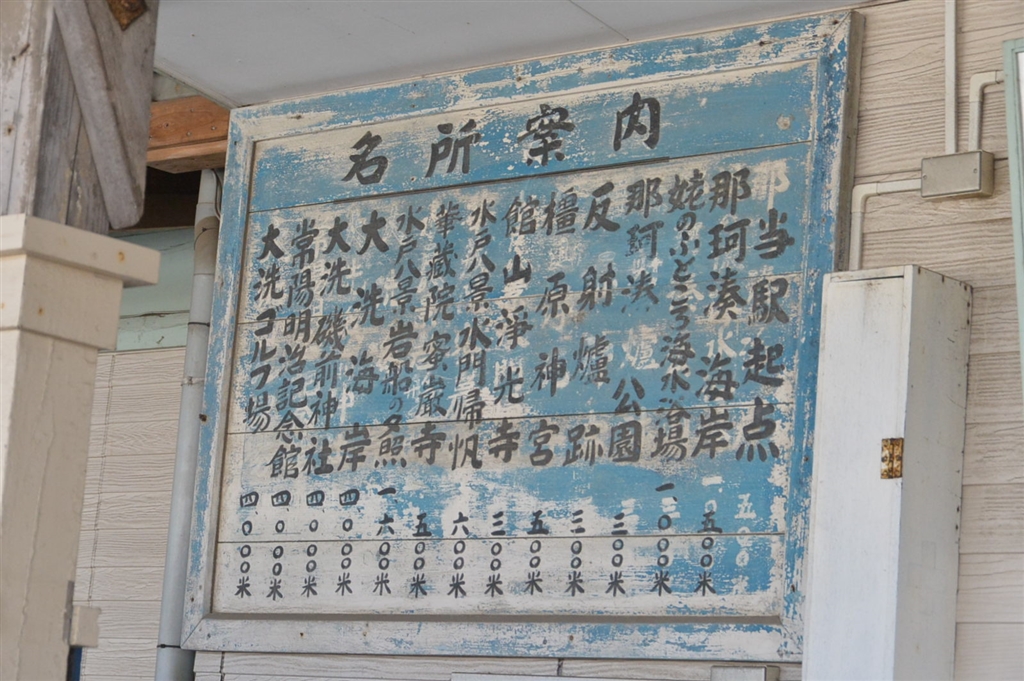 名所案内
当駅起点
那珂湊海岸 五〇〇米
姥のふところ海水浴場 一、〇〇〇米
那珂湊公園 三〇〇米
反射爐跡 三〇〇米
橿原神宮 五〇〇米
館山浄光寺 三〇〇米
水戸八景水門帰帆 六〇〇米
華蔵院蜜厳寺 五〇〇米
水戸八景岩船の夕照 一、六〇〇米
大洗海岸 四、〇〇〇米
大洗磯前神社 四、〇〇〇米
常陽明治記念館 四、〇〇〇米
大洗ゴルフ場 四、〇〇〇米